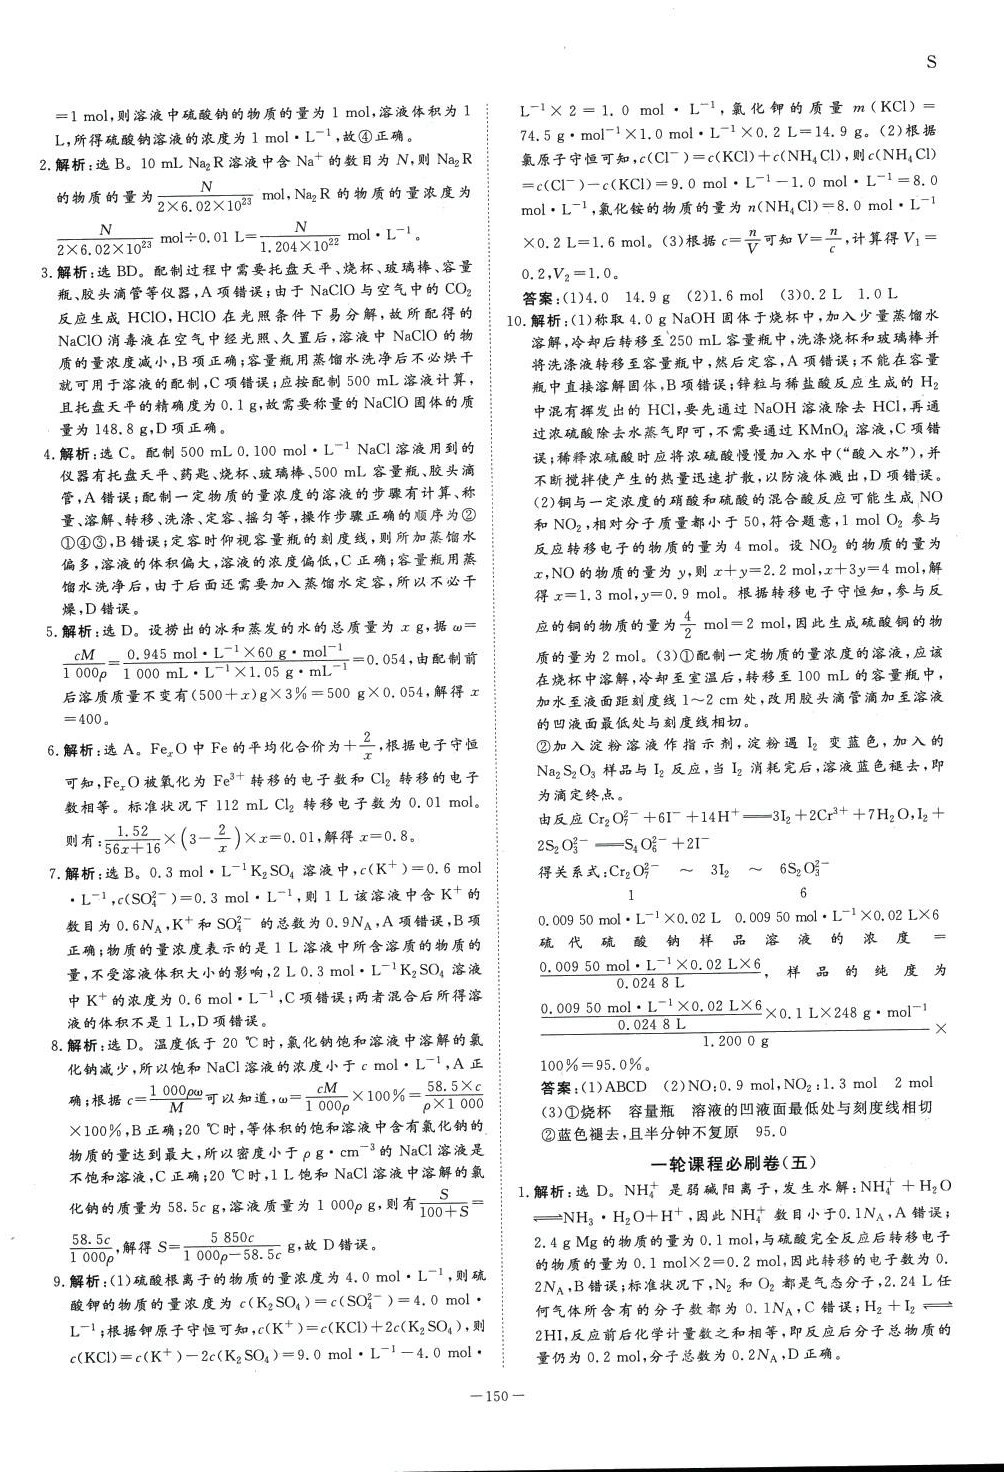 S
=1 mol,则溶液中硫酸钠的物质的量为 1 mol,溶液体积为 1
L,所得硫酸钠溶液的浓度为 1 mol·L⁻¹,故④正确。
2.解析:选 B。10 mL Na₂R 溶液中含 Na⁺ 的数目为 N,则 Na₂R
的物质的量为 N/(2×6.02×10²³) mol,Na₂R 的物质的量浓度为
N/(2×6.02×10²³) mol÷0.01 L=N/(1.204×10²²) mol·L⁻¹。
3.解析:选 BD。配制过程中需要托盘天平、烧杯、玻璃棒、容量
瓶、胶头滴管等仪器,A 项错误;由于 NaClO 与空气中的 CO₂
反应生成 HClO,HClO 在光照条件下易分解,故所配得的
NaClO 消毒液在空气中经光照、久置后,溶液中 NaClO 的物
质的量浓度减小,B 项正确;容量瓶用蒸馏水洗净后不必烘干
就可用于溶液的配制,C 项错误;应按配制 500 mL 溶液计算,
且托盘天平的精确度为 0.1 g,故需要称量的 NaClO 固体的质
量为 148.8 g,D 项正确。
4.解析:选 C。配制 500 mL 0.100 mol·L⁻¹ NaCl 溶液用到的
仪器有托盘天平、药匙、烧杯、玻璃棒、500 mL 容量瓶、胶头滴
管,A 错误;配制一定物质的量浓度的溶液的步骤有计算、称
量、溶解、转移、洗涤、定容、摇匀等,操作步骤正确的顺序为②
①④③,B 错误;定容时仰视容量瓶的刻度线,则所加蒸馏水
偏多,溶液的体积偏大,溶液的浓度偏低,C 正确;容量瓶用蒸
馏水洗净后,由于后面还需要加入蒸馏水定容,所以不必干
燥,D 错误。
5.解析:选 D。设捞出的冰和蒸发的水的总质量为 x g,据 ω=
cM/(1 000ρ)=(0.945 mol·L⁻¹×60 g·mol⁻¹)/(1 000 mL·L⁻¹×1.05 g·mL⁻¹)=0.054,由配制前
后溶质质量不变有(500+x)g×3%=500 g×0.054,解得 x
=400。
6.解析:选 A。FeₓO 中 Fe 的平均化合价为+2/x,根据电子守恒
可知,FeₓO 被氧化为 Fe³⁺ 转移的电子数和 Cl₂ 转移的电子
数相等。标准状况下 112 mL Cl₂ 转移电子数为 0.01 mol。
则有:1.52/(56x+16)×(3−2/x)×x=0.01,解得 x=0.8。
7.解析:选 B。0.3 mol·L⁻¹K₂SO₄ 溶液中,c(K⁺)=0.6 mol
·L⁻¹,c(SO₄²⁻)=0.3 mol·L⁻¹,则 1 L 该溶液中含 K⁺ 的
数目为 0.6Nᴀ,K⁺ 和 SO₄²⁻ 的总数为 0.9Nᴀ,A 项错误,B 项
正确;物质的量浓度表示的是 1 L 溶液中所含溶质的物质的
量,不受溶液体积大小的影响,2 L 0.3 mol·L⁻¹K₂SO₄ 溶液
中 K⁺ 的浓度为 0.6 mol·L⁻¹,C 项错误;两者混合后所得溶
液的体积不是 1 L,D 项错误。
8.解析:选 D。温度低于 20 ℃时,氯化钠饱和溶液中溶解的氯
化钠减少,所以饱和 NaCl 溶液的浓度小于 c mol·L⁻¹,A 正
确;根据 c=1 000ρω/M 可以知道,ω=cM/(1 000ρ)×100%=(58.5×c)/(ρ×1 000)
×100%,B 正确;20 ℃时,等体积的饱和溶液中含有氯化钠的
物质的量达到最大,所以密度小于 ρ g·cm⁻³ 的 NaCl 溶液是
不饱和溶液,C 正确;20 ℃时,1 L 饱和 NaCl 溶液中溶解的氯
化钠的质量为 58.5c g,溶液质量为 1 000ρ g,则有 S/(100+S)=
58.5c/(1 000ρ),解得 S=5 850c/(1 000ρ−58.5c) g,故 D 错误。
9.解析:(1)硫酸根离子的物质的量浓度为 4.0 mol·L⁻¹,则硫
酸钾的物质的量浓度为 c(K₂SO₄)=c(SO₄²⁻)=4.0 mol·
L⁻¹;根据钾原子守恒可知,c(K⁺)=c(KCl)+2c(K₂SO₄),则
c(KCl)=c(K⁺)−2c(K₂SO₄)=9.0 mol·L⁻¹−4.0 mol·
L⁻¹×2=1.0 mol·L⁻¹,氯化钾的质量 m(KCl)=
74.5 g·mol⁻¹×1.0 mol·L⁻¹×0.2 L=14.9 g。(2)根据
氯原子守恒可知,c(Cl⁻)=c(KCl)+c(NH₄Cl),则 c(NH₄Cl)
=c(Cl⁻)−c(KCl)=9.0 mol·L⁻¹−1.0 mol·L⁻¹=8.0
mol·L⁻¹,氯化铵的物质的量为 n(NH₄Cl)=8.0 mol·L⁻¹
×0.2 L=1.6 mol。(3)根据 c=n/V 可知 V=n/c,计算得 V₁=
0.2,V₂=1.0。
答案:(1)4.0 14.9 g (2)1.6 mol (3)0.2 L 1.0 L
10.解析:(1)称取 4.0 g NaOH 固体于烧杯中,加入少量蒸馏水
溶解,冷却后转移至 250 mL 容量瓶中,洗涤烧杯和玻璃棒并
将洗涤液转移至容量瓶中,然后定容,A 项错误;不能在容量
瓶中直接溶解固体,B 项错误;锌粒与稀盐酸反应生成的 H₂
中混有挥发出的 HCl,要先通过 NaOH 溶液除去 HCl,再通
过浓硫酸除去水蒸气即可,不需要通过 KMnO₄ 溶液,C 项错
误;稀释浓硫酸时应将浓硫酸慢慢加入水中(“酸入水”),并
不断搅拌使产生的热量迅速扩散,以防液体溅出,D 项错误。
(2)铜与一定浓度的硝酸和硫酸的混合酸反应可能生成 NO
和 NO₂,相对分子质量都小于 50,符合题意,1 mol O₂ 参与
反应转移电子的物质的量为 4 mol。设 NO₂ 的物质的量为
x,NO 的物质的量为 y,则 x+y=2.2 mol,x+3y=4 mol,解
得 x=1.3 mol,y=0.9 mol。根据转移电子守恒知,参与反
应的铜的物质的量为 4/2 mol=2 mol,因此生成硫酸铜的物
质的量为 2 mol。(3)①配制一定物质的量浓度的溶液,应该
在烧杯中溶解,冷却至室温后,转移至 100 mL 的容量瓶中,
加水至液面距刻度线 1~2 cm 处,改用胶头滴管滴加至溶液
的凹液面最低处与刻度线相切。
②加入淀粉溶液作指示剂,淀粉遇 I₂ 变蓝色,加入的
Na₂S₂O₃ 样品与 I₂ 反应,当 I₂ 消耗完后,溶液蓝色褪去,即
为滴定终点。
由反应 Cr₂O₇²⁻+6I⁻+14H⁺══3I₂+2Cr³⁺+7H₂O,I₂+
2S₂O₃²⁻══S₄O₆²⁻+2I⁻
得关系式:Cr₂O₇²⁻ ~ 3I₂ ~ 6S₂O₃²⁻
1 6
0.009 50 mol·L⁻¹×0.02 L 0.009 50 mol·L⁻¹×0.02 L×6
硫代硫酸钠样品溶液的浓度=
(0.009 50 mol·L⁻¹×0.02 L×6)/(0.024 8 L),样品的纯度为
((0.009 50 mol·L⁻¹×0.02 L×6)/(0.024 8 L)×0.1 L×248 g·mol⁻¹)/(1.200 0 g)×
100%=95.0%。
答案:(1)ABCD (2)NO:0.9 mol,NO₂:1.3 mol 2 mol
(3)①烧杯 容量瓶 溶液的凹液面最低处与刻度线相切
②蓝色褪去,且半分钟不复原 95.0
一轮课程必刷卷(五)
1.解析:选 D。NH₄⁺ 是弱碱阳离子,发生水解:NH₄⁺+H₂O
⇌NH₃·H₂O+H⁺,因此 NH₄⁺ 数目小于0.1Nᴀ,A 错误;
2.4 g Mg 的物质的量为 0.1 mol,与硫酸完全反应后转移电子
的物质的量为 0.1 mol×2=0.2 mol,因此转移的电子数为 0.
2Nᴀ,B 错误;标准状况下,N₂ 和 O₂ 都是气态分子,2.24 L 任
何气体所含有的分子数都为 0.1Nᴀ,C 错误;H₂+I₂⇌
2HI,反应前后化学计量数之和相等,即反应后分子总物质的
量仍为 0.2 mol,分子总数为 0.2Nᴀ,D 正确。
—150—